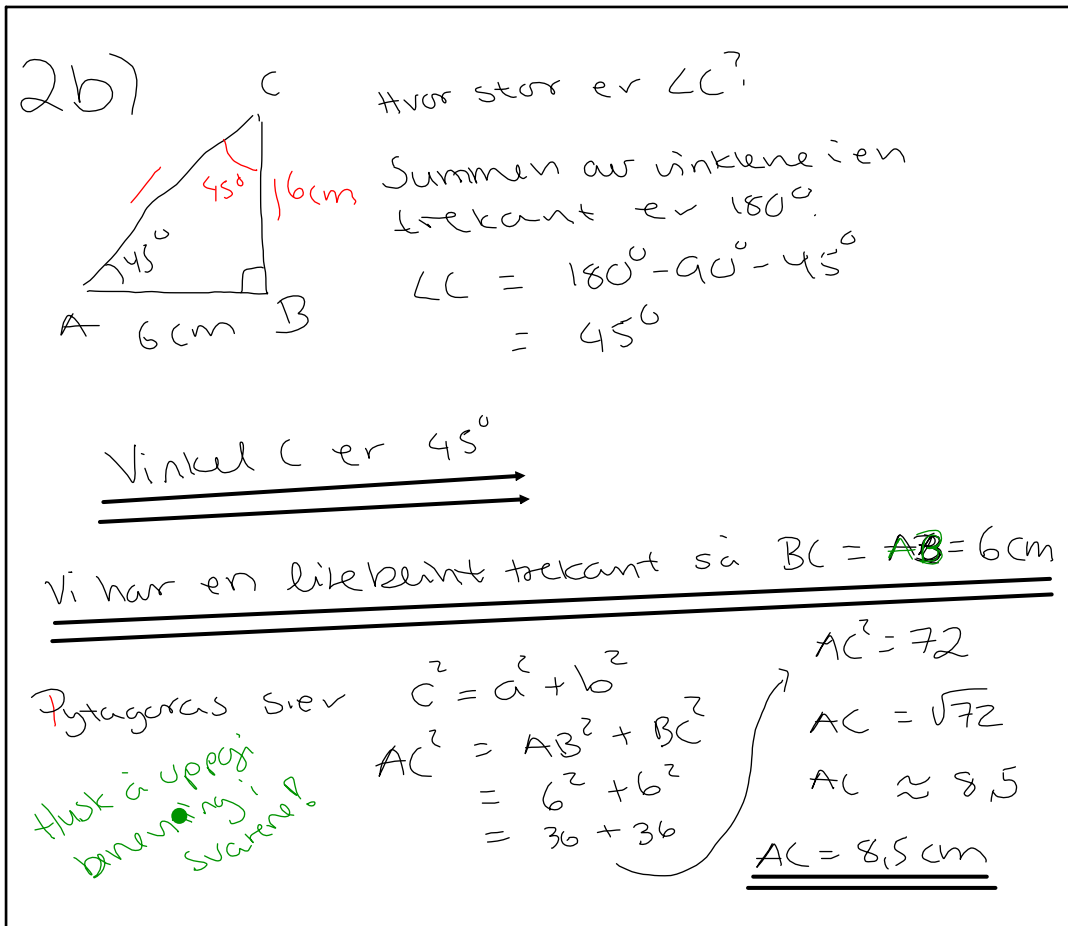 2b)
C
45°
6cm
45°
A 6cm B
Hvor stor er ∠C?
Summen av vinklene i en
trekant er 180°.
∠C = 180° - 90° - 45°
= 45°
Vinkel C er 45°
Vi har en likebeint trekant så BC = AB = 6cm
Pytagoras sier c² = a² + b²
AC² = AB² + BC²
= 6² + 6²
= 36 + 36
AC² = 72
AC = √72
AC ≈ 8,5
AC = 8,5 cm
Husk å oppgi
benevning i
svarene!